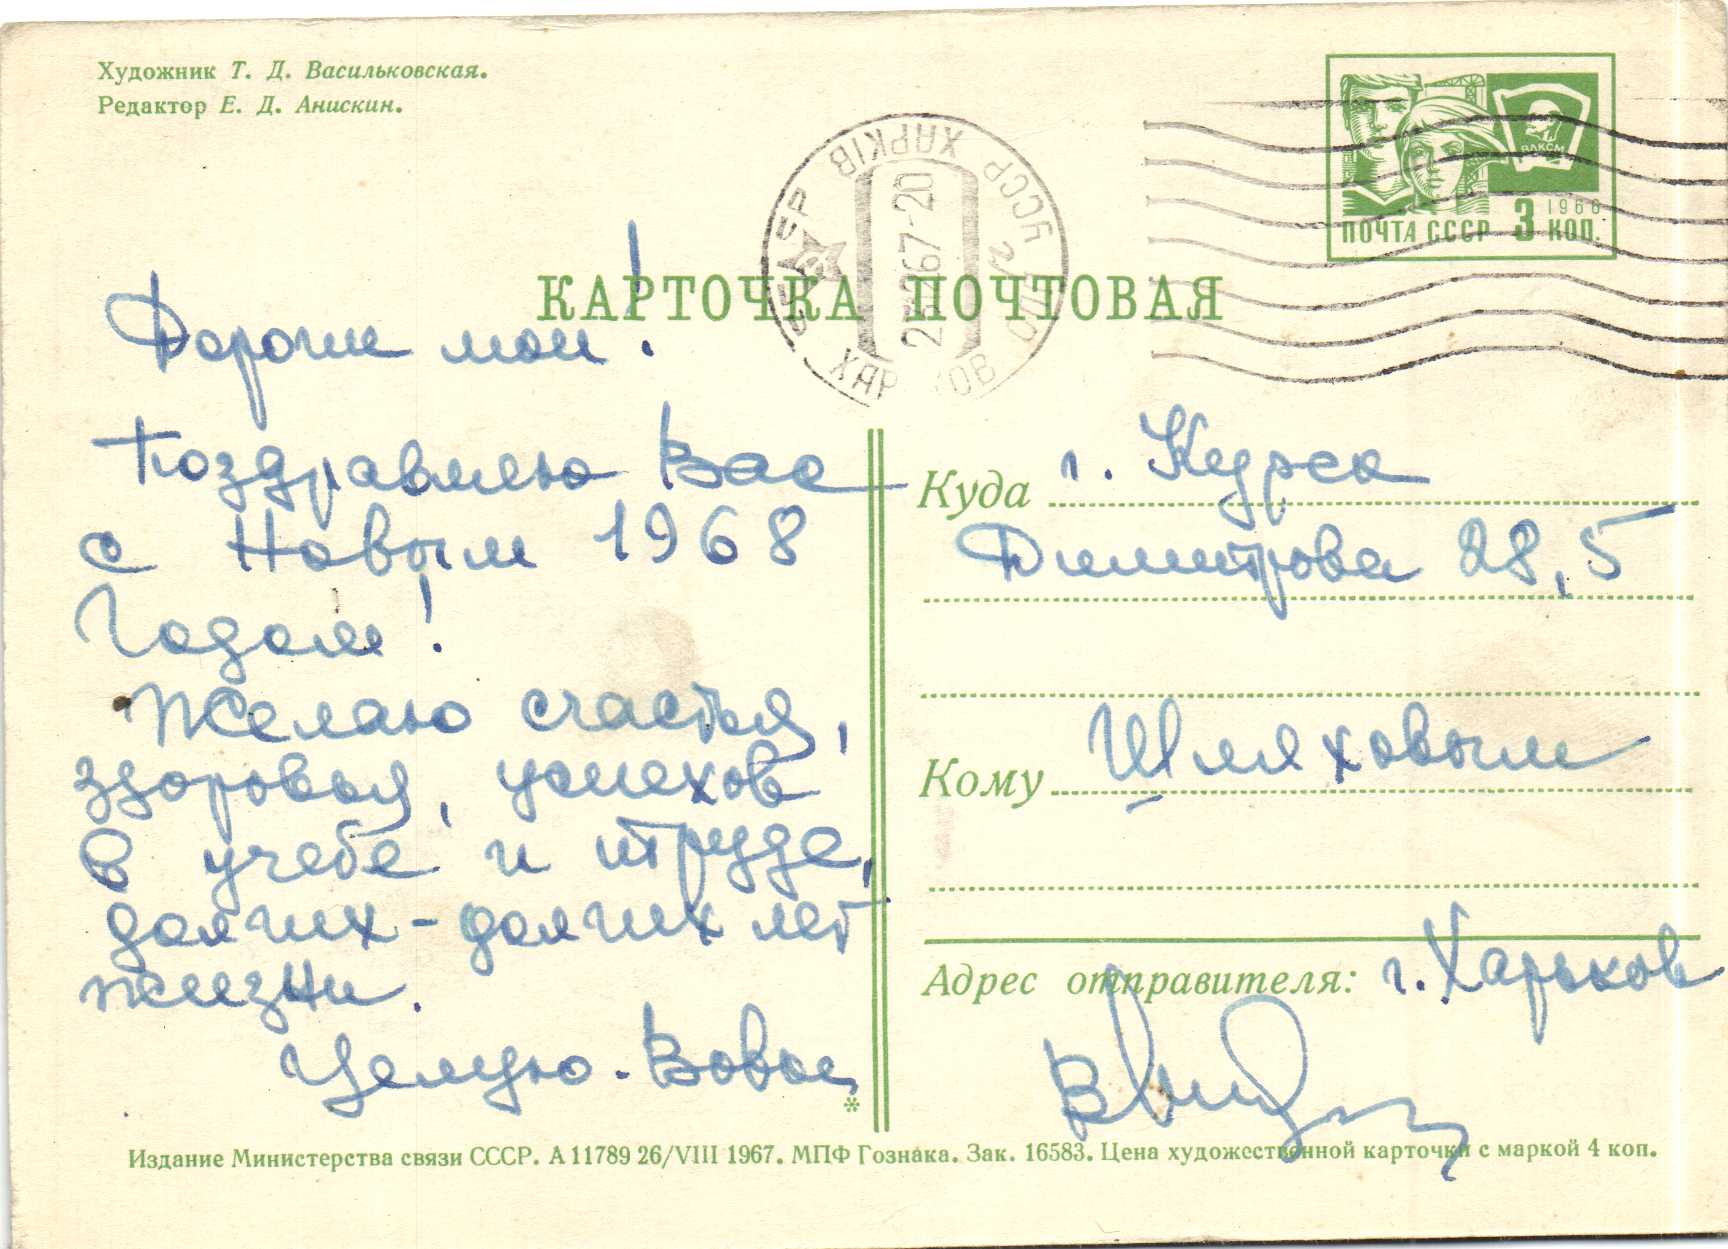 Художник Т. Д. Васильковская.
Редактор Е. Д. Анискин.
ВЛКСМ
1966
ПОЧТА СССР 3 КОП.
ХАРКІВ УССР
67-20
КАРТОЧКА ПОЧТОВАЯ
Дорогие мои!
Поздравляю Вас
с Новым 1968
Годом!
Желаю счастья,
здоровья, успехов
в учебе и труде,
долгих-долгих лет
жизни.
Целую. Вова
*
Куда г. Курск
Димитрова 28,5
Кому Шляховым
Адрес отправителя: г. Харьков
Издание Министерства связи СССР. А 11789 26/VIII 1967. МПФ Гознака. Зак. 16583. Цена художественной карточки с маркой 4 коп.